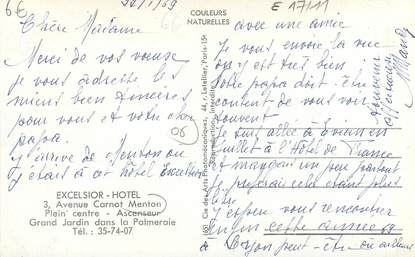 6€
22/1/69
COULEURS
NATURELLES
E 17111
Chère Madame
Merci de vos vœux
je vous adresse les
miens bien sincères
pour vous et votre cher
papa.
j'arrive de Menton ou
j'étais à cet hôtel Excelsior
06
EXCELSIOR - HOTEL
3, Avenue Carnot Menton
Plein centre - Ascenseur
Grand Jardin dans la Palmeraie
Tél. : 35-74-07
Cie des Arts Photomécaniques, 44, r. Letellier, Paris-15e
avec une amie
Je vous envoie la vue
on y est très bien
Votre papa doit-être
content de vous voir
souvent
Je suis allée à Evian en
juillet à l'Hôtel de France
et mangeais un peu partout
je préférais cela étant
J'espère vous rencontrer
Enfin cette année
à Lyon peut-être ou ailleurs
souvenir
affectueux